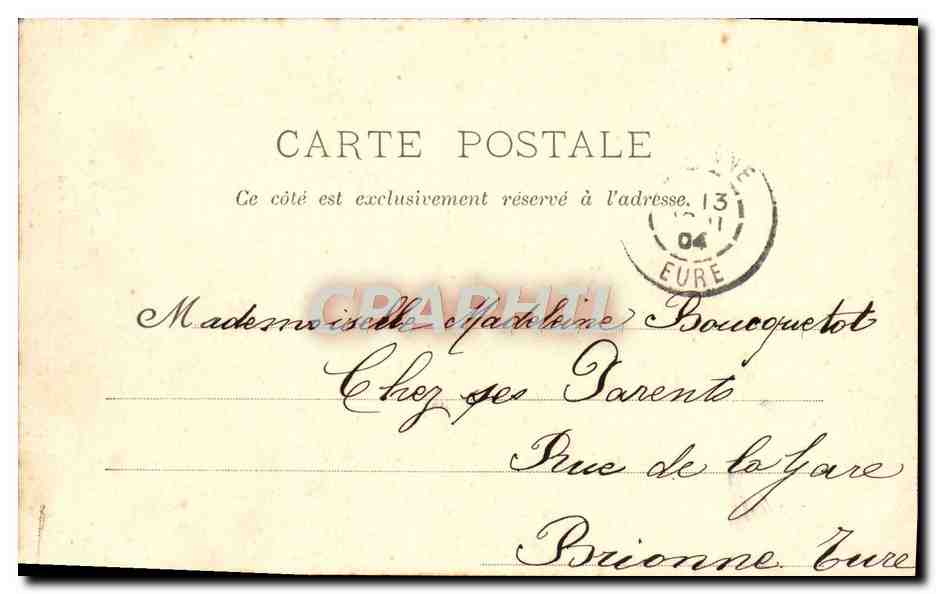 CARTE POSTALE
Ce côté est exclusivement réservé à l'adresse.
13
04
EURE
CRAPHIL
Mademoiselle Madeleine Boucquetot
Chez ses Parents
Rue de la Gare
Brionne Eure